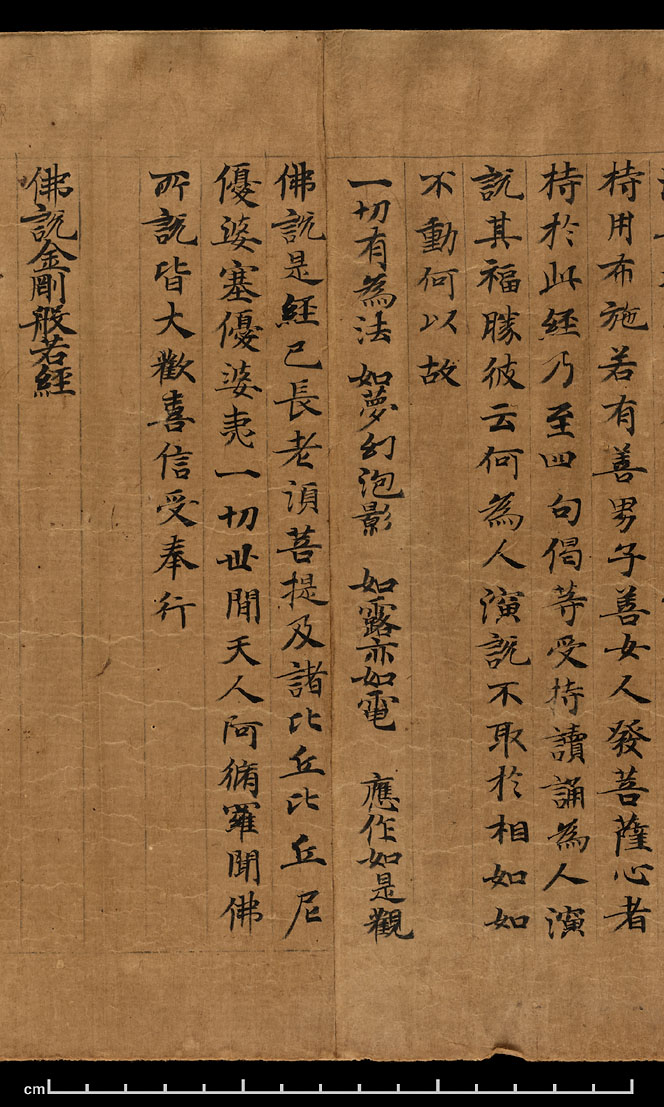 持用布施若有善男子善女人發菩薩心者
持於此經乃至四句偈等受持讀誦為人演
說其福勝彼云何為人演說不取於相如如
不動何以故
一切有為法 如夢幻泡影 如露亦如電 應作如是觀
佛說是經已長老須菩提及諸比丘比丘尼
優婆塞優婆夷一切世間天人阿脩羅聞佛
所說皆大歡喜信受奉行
佛說金剛般若經
cm